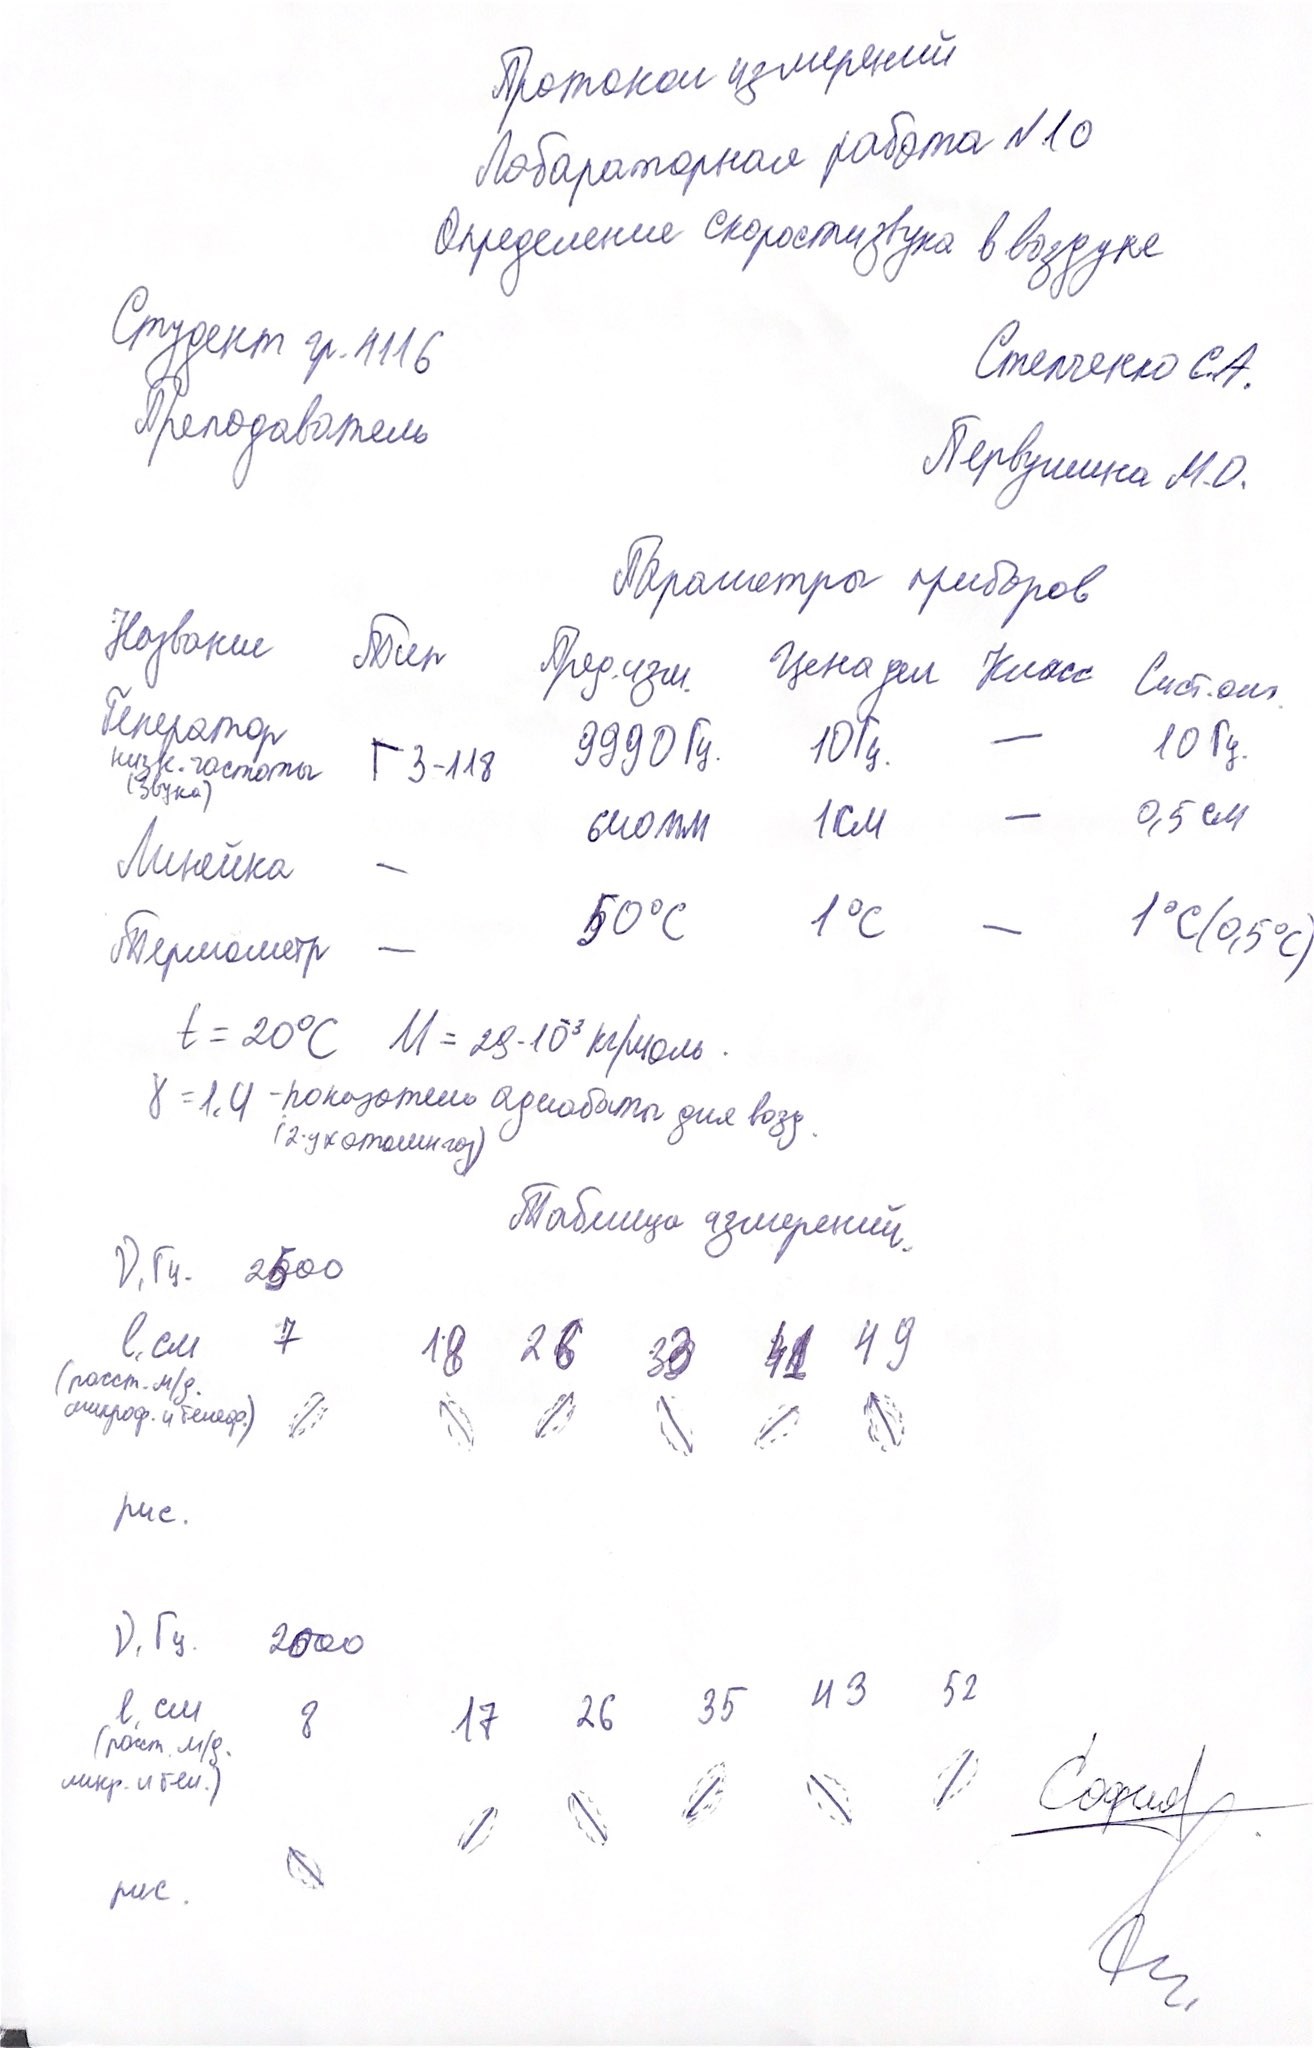 Протокол измерений
Лабараторная работа №10
Определение скорости звука в воздухе
Студент гр. 4116 Степченко С.А.
Преподаватель Первушина М.О.
Параметры приборов
Название Тип Пред. изм. Цена дел Класс Сист. ош.
Генератор низк. частоты (звука) Г3-118 9990 Гц. 10 Гц. — 10 Гц.
Линейка — 640 мм 1 см — 0,5 см
Термометр — 50°C 1°C — 1°C (0,5°C)
t = 20°C M = 29·10⁻³ кг/моль.
γ = 1.4 - показатель адиабаты для возд.
(2-ух атомн газ)
Таблица измерений.
ν, Гц. 2500
l, см 7 18 26 33 41 49
(расст. м/д.
микроф. и телеф.)
рис.
ν, Гц. 2000
l, см 8 17 26 35 43 52
(расст. м/д.
микр. и тел.)
рис.
София